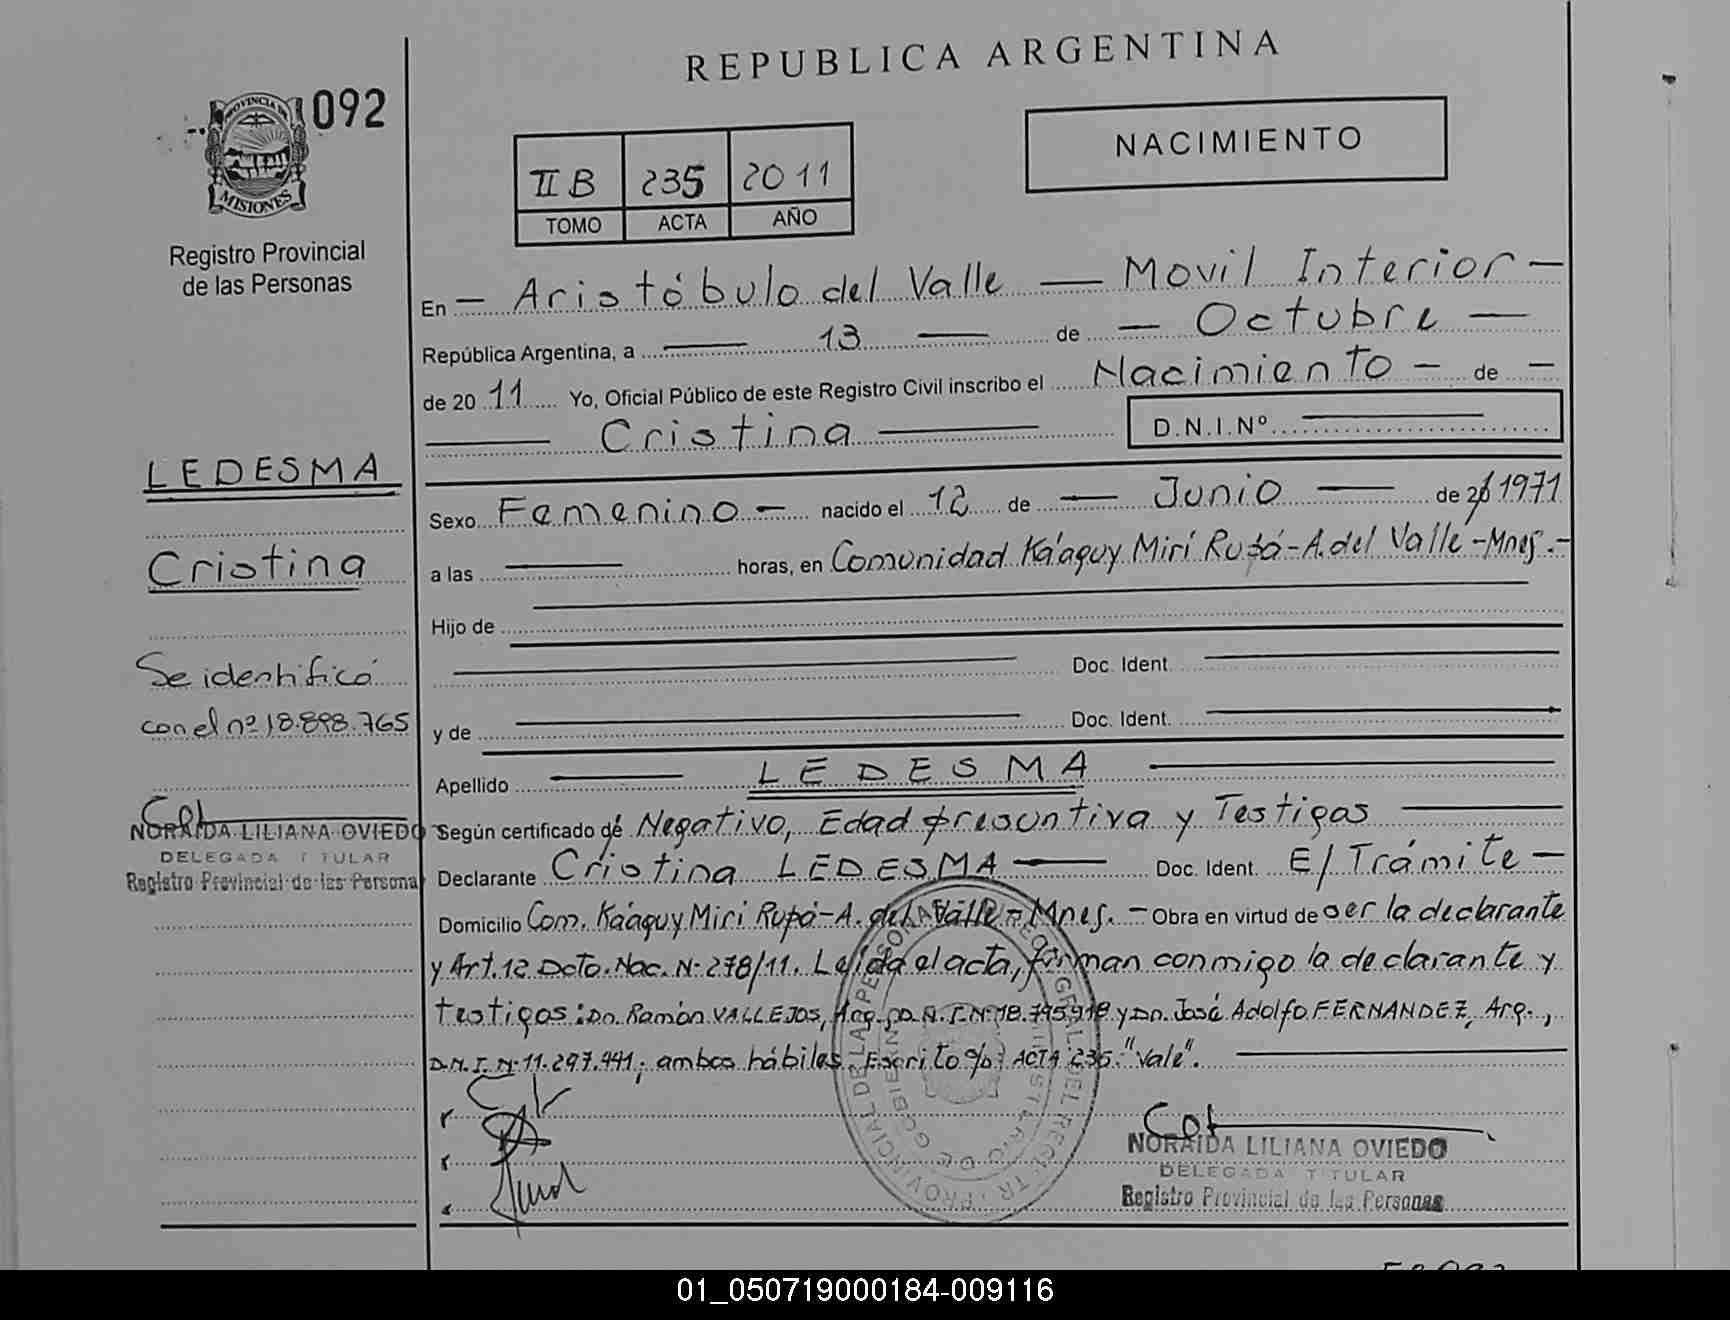 REPUBLICA ARGENTINA
092
PROVINCIA DE
MISIONES
NACIMIENTO
II B 235 2011
TOMO ACTA AÑO
Registro Provincial
de las Personas
En — Aristóbulo del Valle — Movil Interior —
República Argentina, a — 13 — de — Octubre —
de 20 11 Yo, Oficial Público de este Registro Civil inscribo el Nacimiento — de —
— Cristina — D.N.I.Nº —
LEDESMA
Cristina
Se identificó
con el nº 18.898.765
NORAIDA LILIANA OVIEDO
DELEGADA TITULAR
Registro Provincial de las Persona
Sexo Femenino — nacido el 12 de — Junio — de 20 1971
a las — horas, en Comunidad Ká'aguy Mirí Rupá - A. del Valle - Mnes. -
Hijo de —
— Doc. Ident. —
y de — Doc. Ident. —
Apellido — LEDESMA —
Según certificado de Negativo, Edad presuntiva y Testigos —
Declarante Cristina LEDESMA — Doc. Ident. E/Trámite —
Domicilio Com. Ká'aguy Miri Rupá - A. del Valle - Mnes. - Obra en virtud de ser la declarante
y Art. 12 Dcto. Nac. Nº 278/11. Leída el acta, firman conmigo la declarante y
testigos: Dn. Ramón VALLEJOS, Arg., D.N.I. Nº 18.795.918 y Dn. José Adolfo FERNANDEZ, Arg.,
D.N.I. Nº 11.297.441; ambos hábiles. Escrito %: ACTA 235: "Vale". —
NORAIDA LILIANA OVIEDO
DELEGADA TITULAR
Registro Provincial de las Personas
01_050719000184-009116